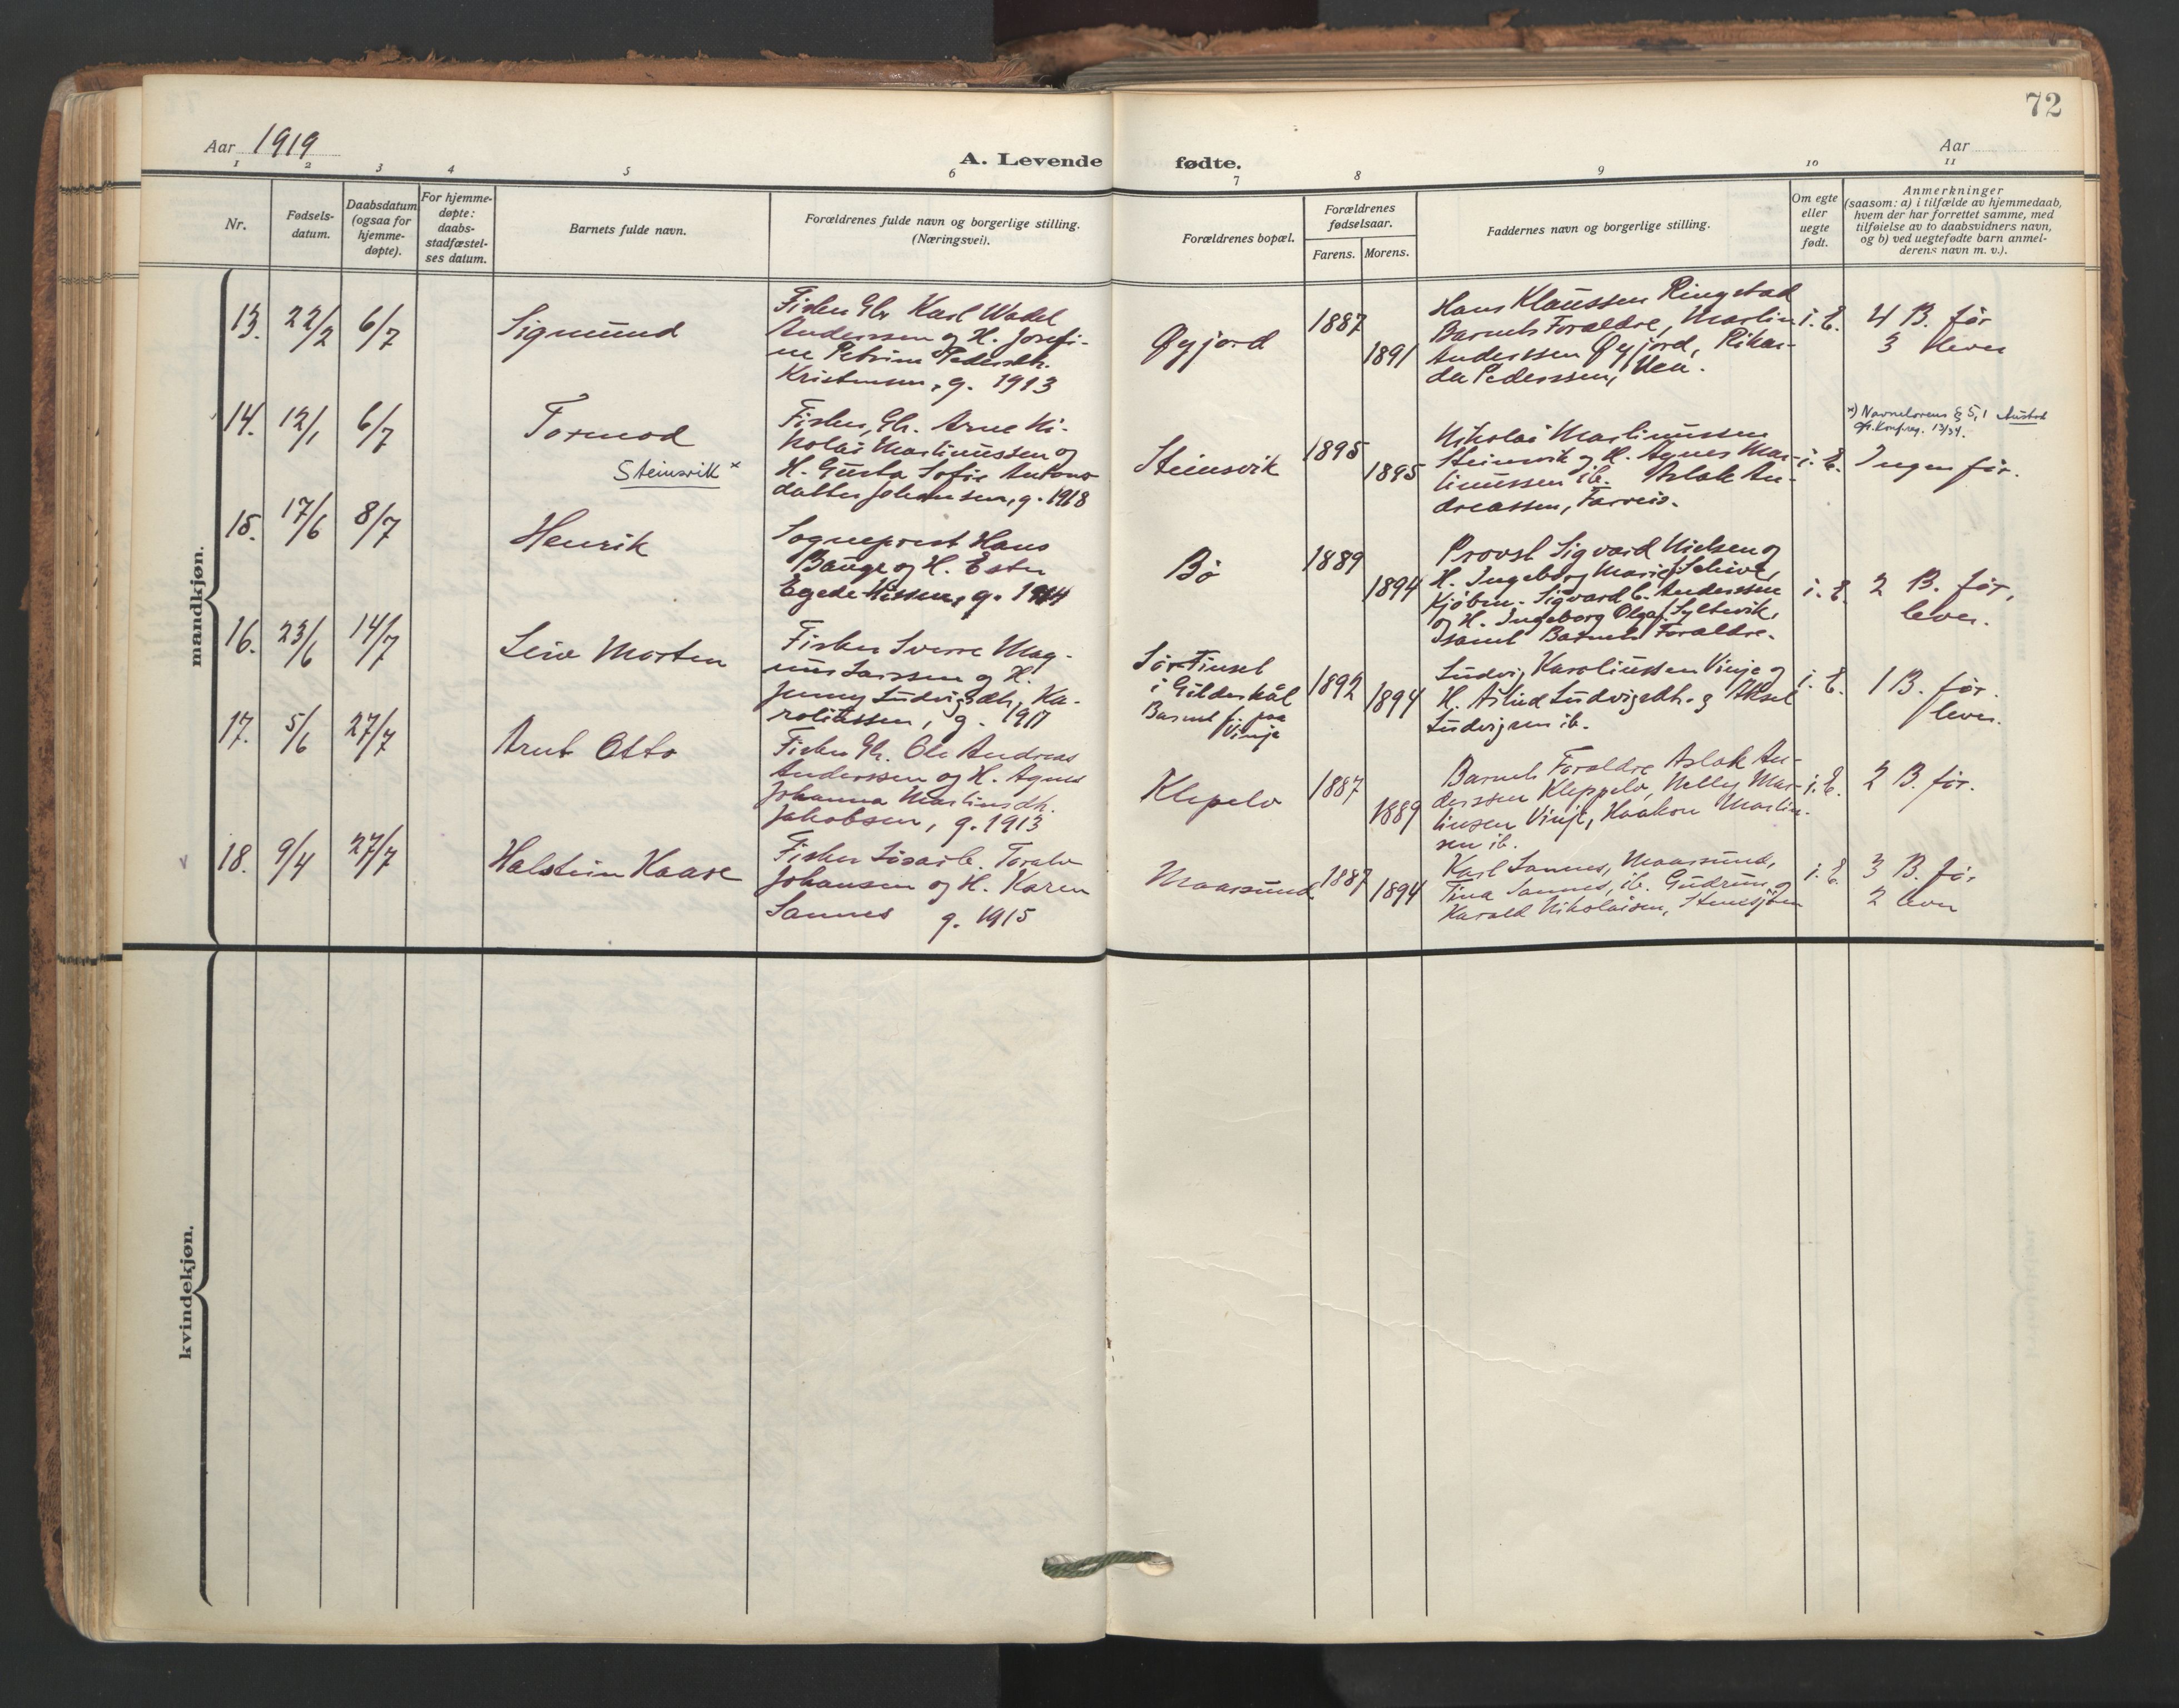 72
Aar 1919
A. Levende fødte.
Aar
1 2 3 4 5 6 7 8 9 10 11
Nr.
Fødsels-
datum.
Daabsdatum
(ogsaa for
hjemme-
døpte).
For hjemme-
døpte:
daabs-
stadfæstel-
ses datum.
Barnets fulde navn.
Forældrenes fulde navn og borgerlige stilling.
(Næringsvei).
Forældrenes bopæl.
Forældrenes
fødselsaar.
Farens. Morens.
Faddernes navn og borgerlige stilling.
Om egte
eller
uegte
født.
Anmerkninger
(saasom: a) i tilfælde av hjemmedaab,
hvem der har forrettet samme, med
tilføielse av to daabsvidners navn,
og b) ved uegtefødte barn anmel-
derens navn m. v.).
mandkjøn.
13. 22/2 6/7
Sigmund
Fisker Gbr Karl Wadel
Anderssen og H. Josefi-
ne Petrine Pedersdtr.
Kristensen, g. 1913
Øyjord
1887
1891
Hans Klaussen Ringstad
Barnets Forældre, Martin
Anderssen Øyjord, Rikar-
da Pederssen, Vea.
i. E.
4 B. før
3 lever
14. 12/1 6/7
Tormod
Steinsvik x
Fisker, Gbr. Arne Ni-
kolai Martinussen og
H. Gusta Sofie Antons-
datter Johansen, g. 1918
Steinsvik
1895
1895
Nikolai Martinussen
Steinsvik og H. Agnes Mar-
tinussen ib. Aslak An-
dreassen,
i. E.
x) Navnelovens § 5,1
cfr. Konf.reg. 13/34.
Ingen før.
15. 17/6 8/7
Henrik
Sogneprest Hans
Bauge og H. Ester
Egede-Nissen, g. 1914
Bø
1889
1894
Provst Sigvard Nielsen og
H. Ingeborg Marie f. Schive,
Kjøbm. Sigvard C. Anderssen
og H. Ingeborg Olga f. Syltevik,
samt Barnets Forældre.
i. E.
2 B. før,
lever.
16. 23/6 14/7
Leiv Morten
Fisker Sverre Mag-
nus Larssen og H.
Jenny Ludvigsdtr. Ka-
roliussen, g. 1917
Sør-Finset
i Gildeskål
Barnet f. paa
Vinje
1892
1894
Ludvig Karoliussen Vinje og
H. Astrid Ludvigsdtr. og Aksel
Ludvigsen ib.
i. E.
1 B. før.
lever.
17. 5/6 27/7
Arnt Otto
Fisker Gb. Ole Andreas
Anderssen og H. Agnes
Johanna Martinsdtr.
Jakobsen, g. 1913
Klepelv
1887
1889
Barnets Forældre Aslak An-
derssen Kleppelv, Nelly Mar-
tinsen Vinje, Haakon Martin-
sen ib.
i. E.
2 B. før.
18. 9/4 27/7
Halstein Kaare
Fisker Løsarb. Toralv
Johansen og H. Karen
Sannes g. 1915
Maarsund
1887
1894
Karl Sannes, Maarsund,
Tina Sannes, ib. Gudrun og
Harald Nikolaisen, Steinsjøen
i. E.
3 B. før
2 lever
kvindekjøn.